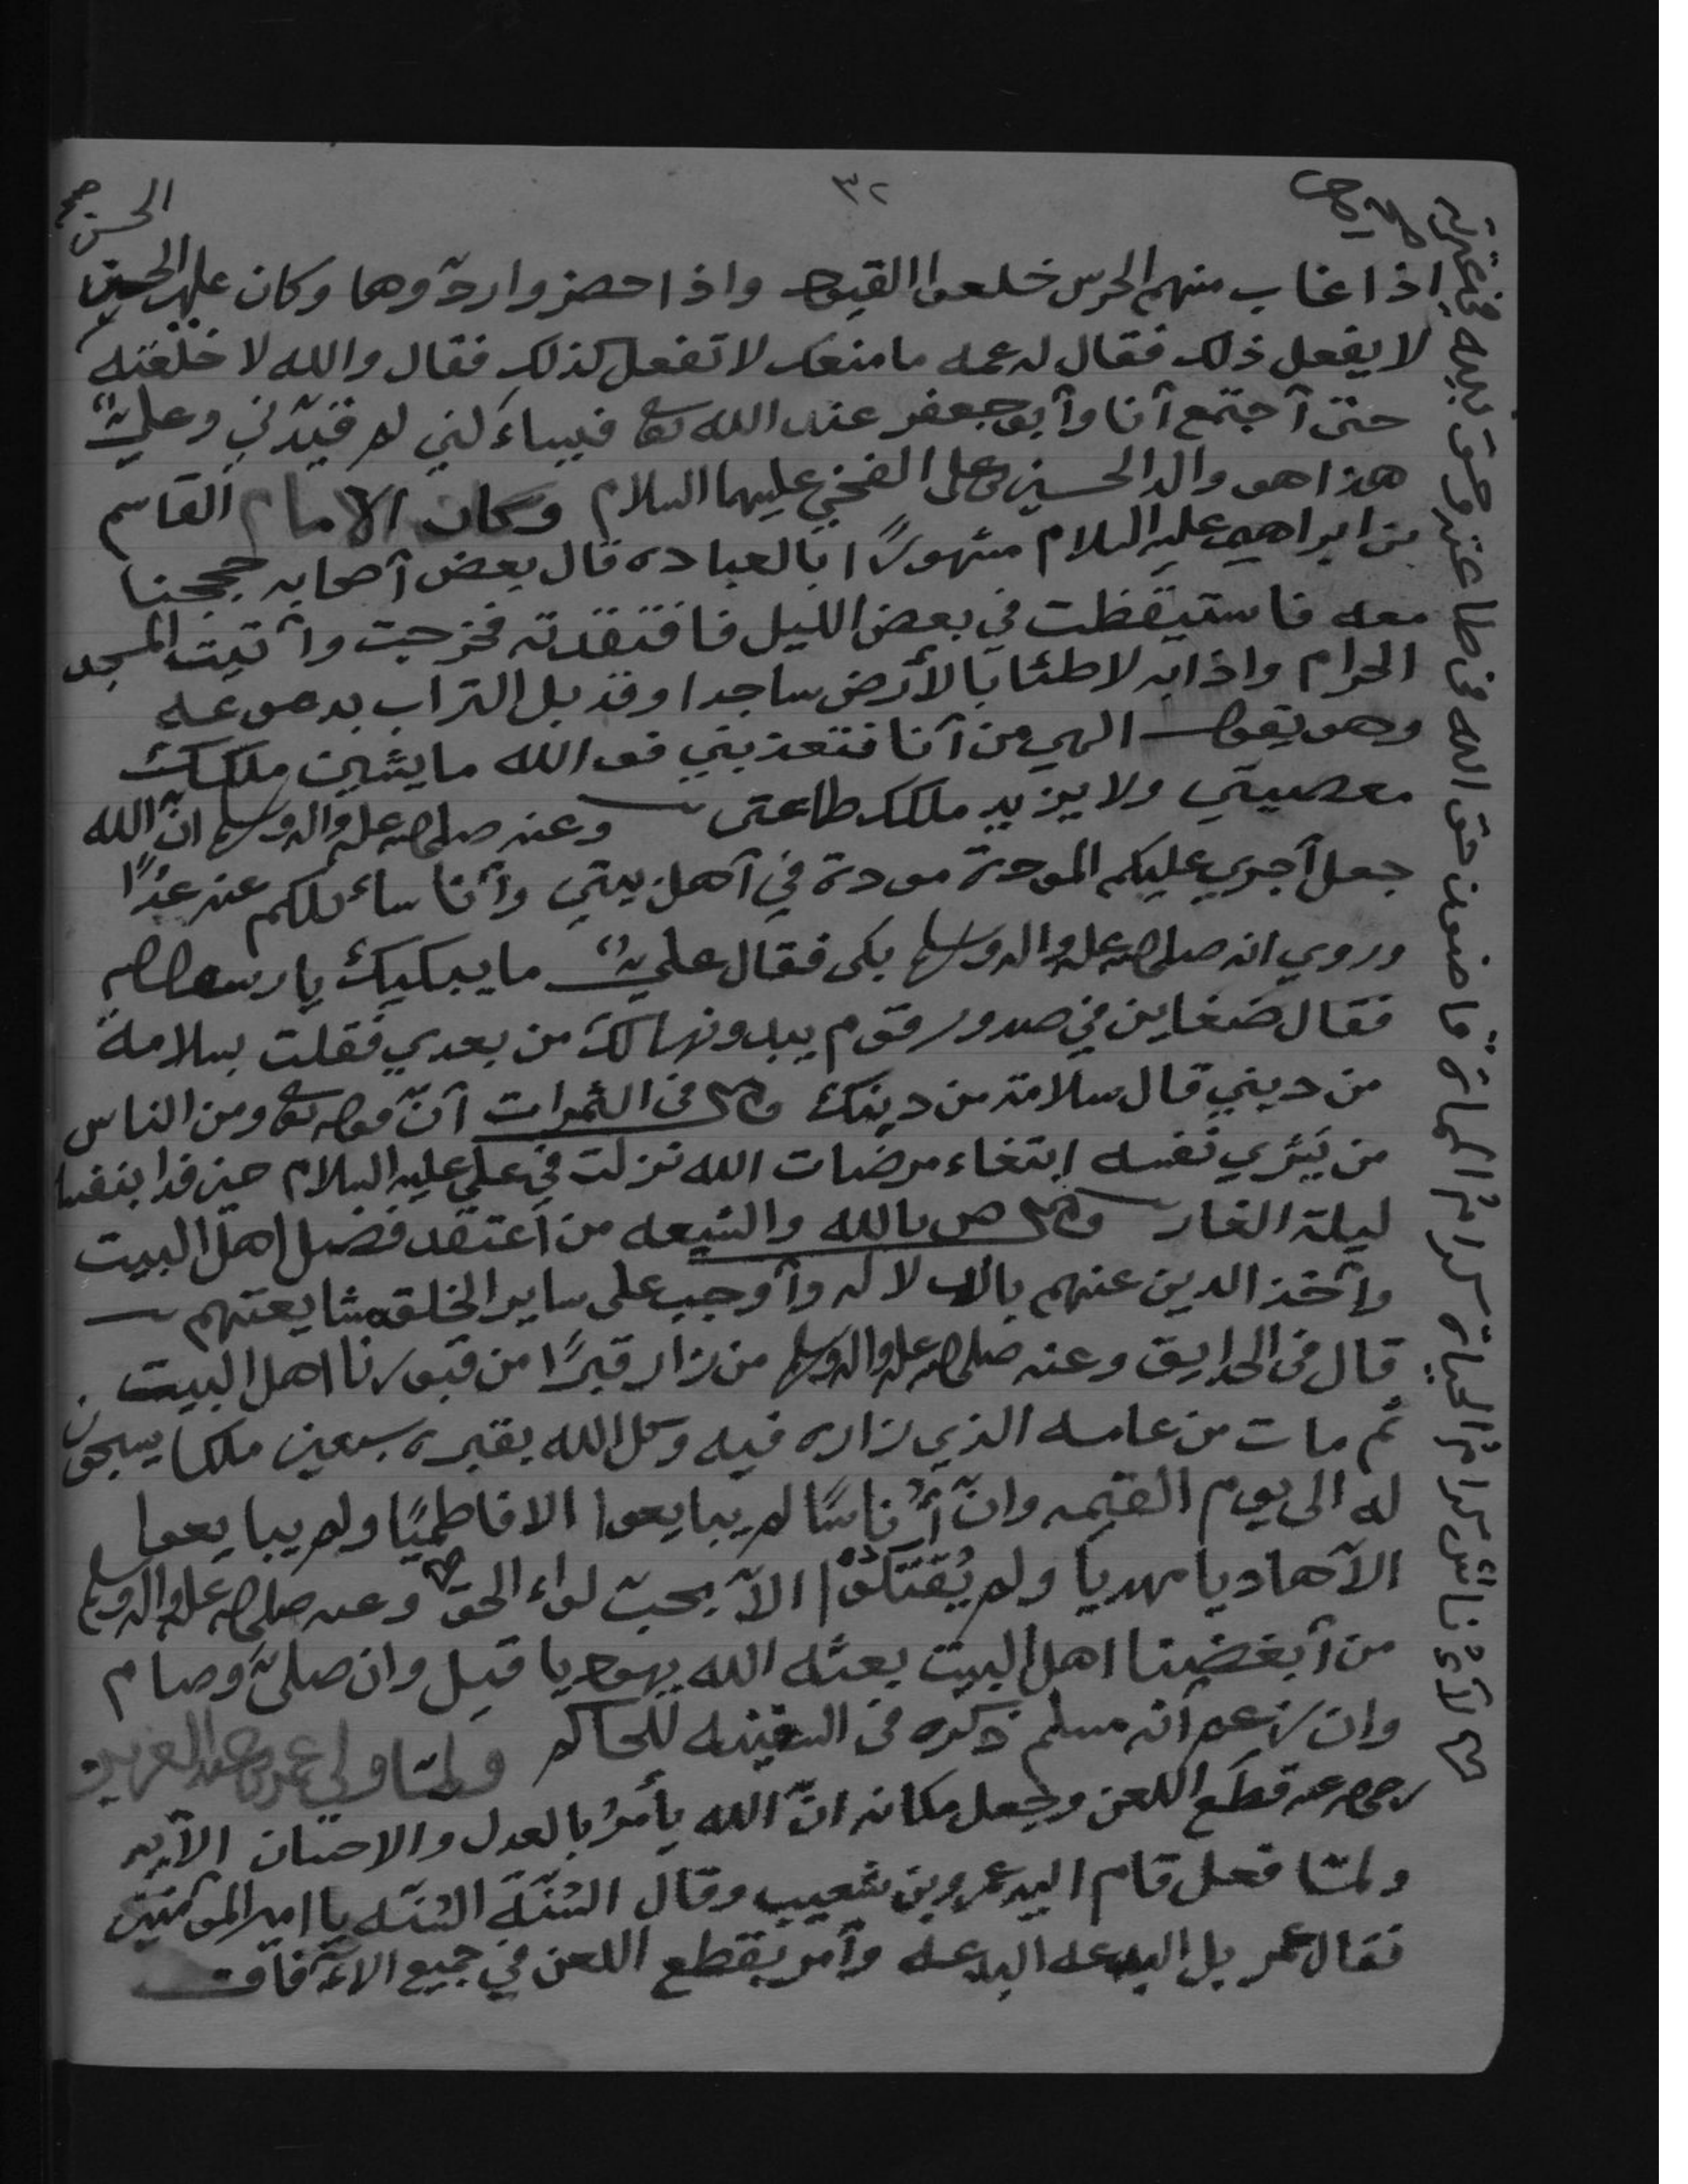 ٣٢
الحسن صح
اذا غاب منهم الحرس خلعوا القيود واذا حضروا ردّوها وكان علي بن الحسين
لا يفعل ذلك فقال له عمه ما منعك لا تفعل كذلك فقال والله لا خلعته
حتى أجتمع أنا وأبو جعفر عند الله تعا فيسأله لم قيّدني وعلي
هذا هو والد الحسين بن علي الفخي عليهما السلام وكان الامام القاسم
بن ابراهيم عليه السلام مشهورًا بالعباده قال بعض أصحابه حججنا
معه فاستيقظت في بعض الليل فافتقدته فخرجت وأتيت المسجد
الحرام واذا به لاطئا بالأرض ساجدا وقد بل التراب بدموعه
وهو يقول الهي من أنا فتعذبني فوالله ما يشين ملكك
معصيتي ولا يزيد ملكك طاعتي وعنه صلى الله عليه واله وسلم ان الله
جعل أجري عليكم المودة في أهل بيتي وأنا سائلكم عنه غدًا
وروي انه صلى الله عليه واله وسلم بكى فقال علي ما يبكيك يا رسول الله
فقال ضغاين في صدور قوم يبدونها لك من بعدي فقلت بسلامة
من ديني قال سلامة من دينك في الثمرات أنّ قوله تعا ومن الناس
من يشري نفسه إبتغاء مرضات الله نزلت في علي عليه السلام حين فدا بنفسه
ليلة الغار ص بالله والشيعه من أعتقد فضل اهل البيت
وأخذ الدين عنهم وأوجب على ساير الخلق مشايعتهم
قال في الحدايق وعنه صلى الله عليه واله وسلم من زار قبرًا من قبورنا اهل البيت
ثم مات من عامه الذي زاره فيه وكل الله بقبره سبعين ملكا يسبحون
له الى يوم القيمه وانّ أُناسًا لم يبايعوا الا فاطميًا ولم يبايعوا
الآ هاديا مهديا ولم يُقتلوا الآ تحت لواء الحق وعنه صلى الله عليه واله وسلم
من أبغضنا اهل البيت بعثه الله يهوديا قيل وان صلىّ وصام
وان زعم أنه مسلم ذكره في السفينه للحاكم ولمّا ولي عمر بن عبد العزيز
رضي الله عنه قطع اللعن وجعل مكانه انّ الله يأمرُ بالعدل والاحسان الآيه
ولمّا فعل قام اليه عمرو بن شعيب وقال السُنّة السُنّه يا امير المؤمنين
فقال عمر بل البدعه البدعه وأمر بقطع اللعن في جميع الآفاق